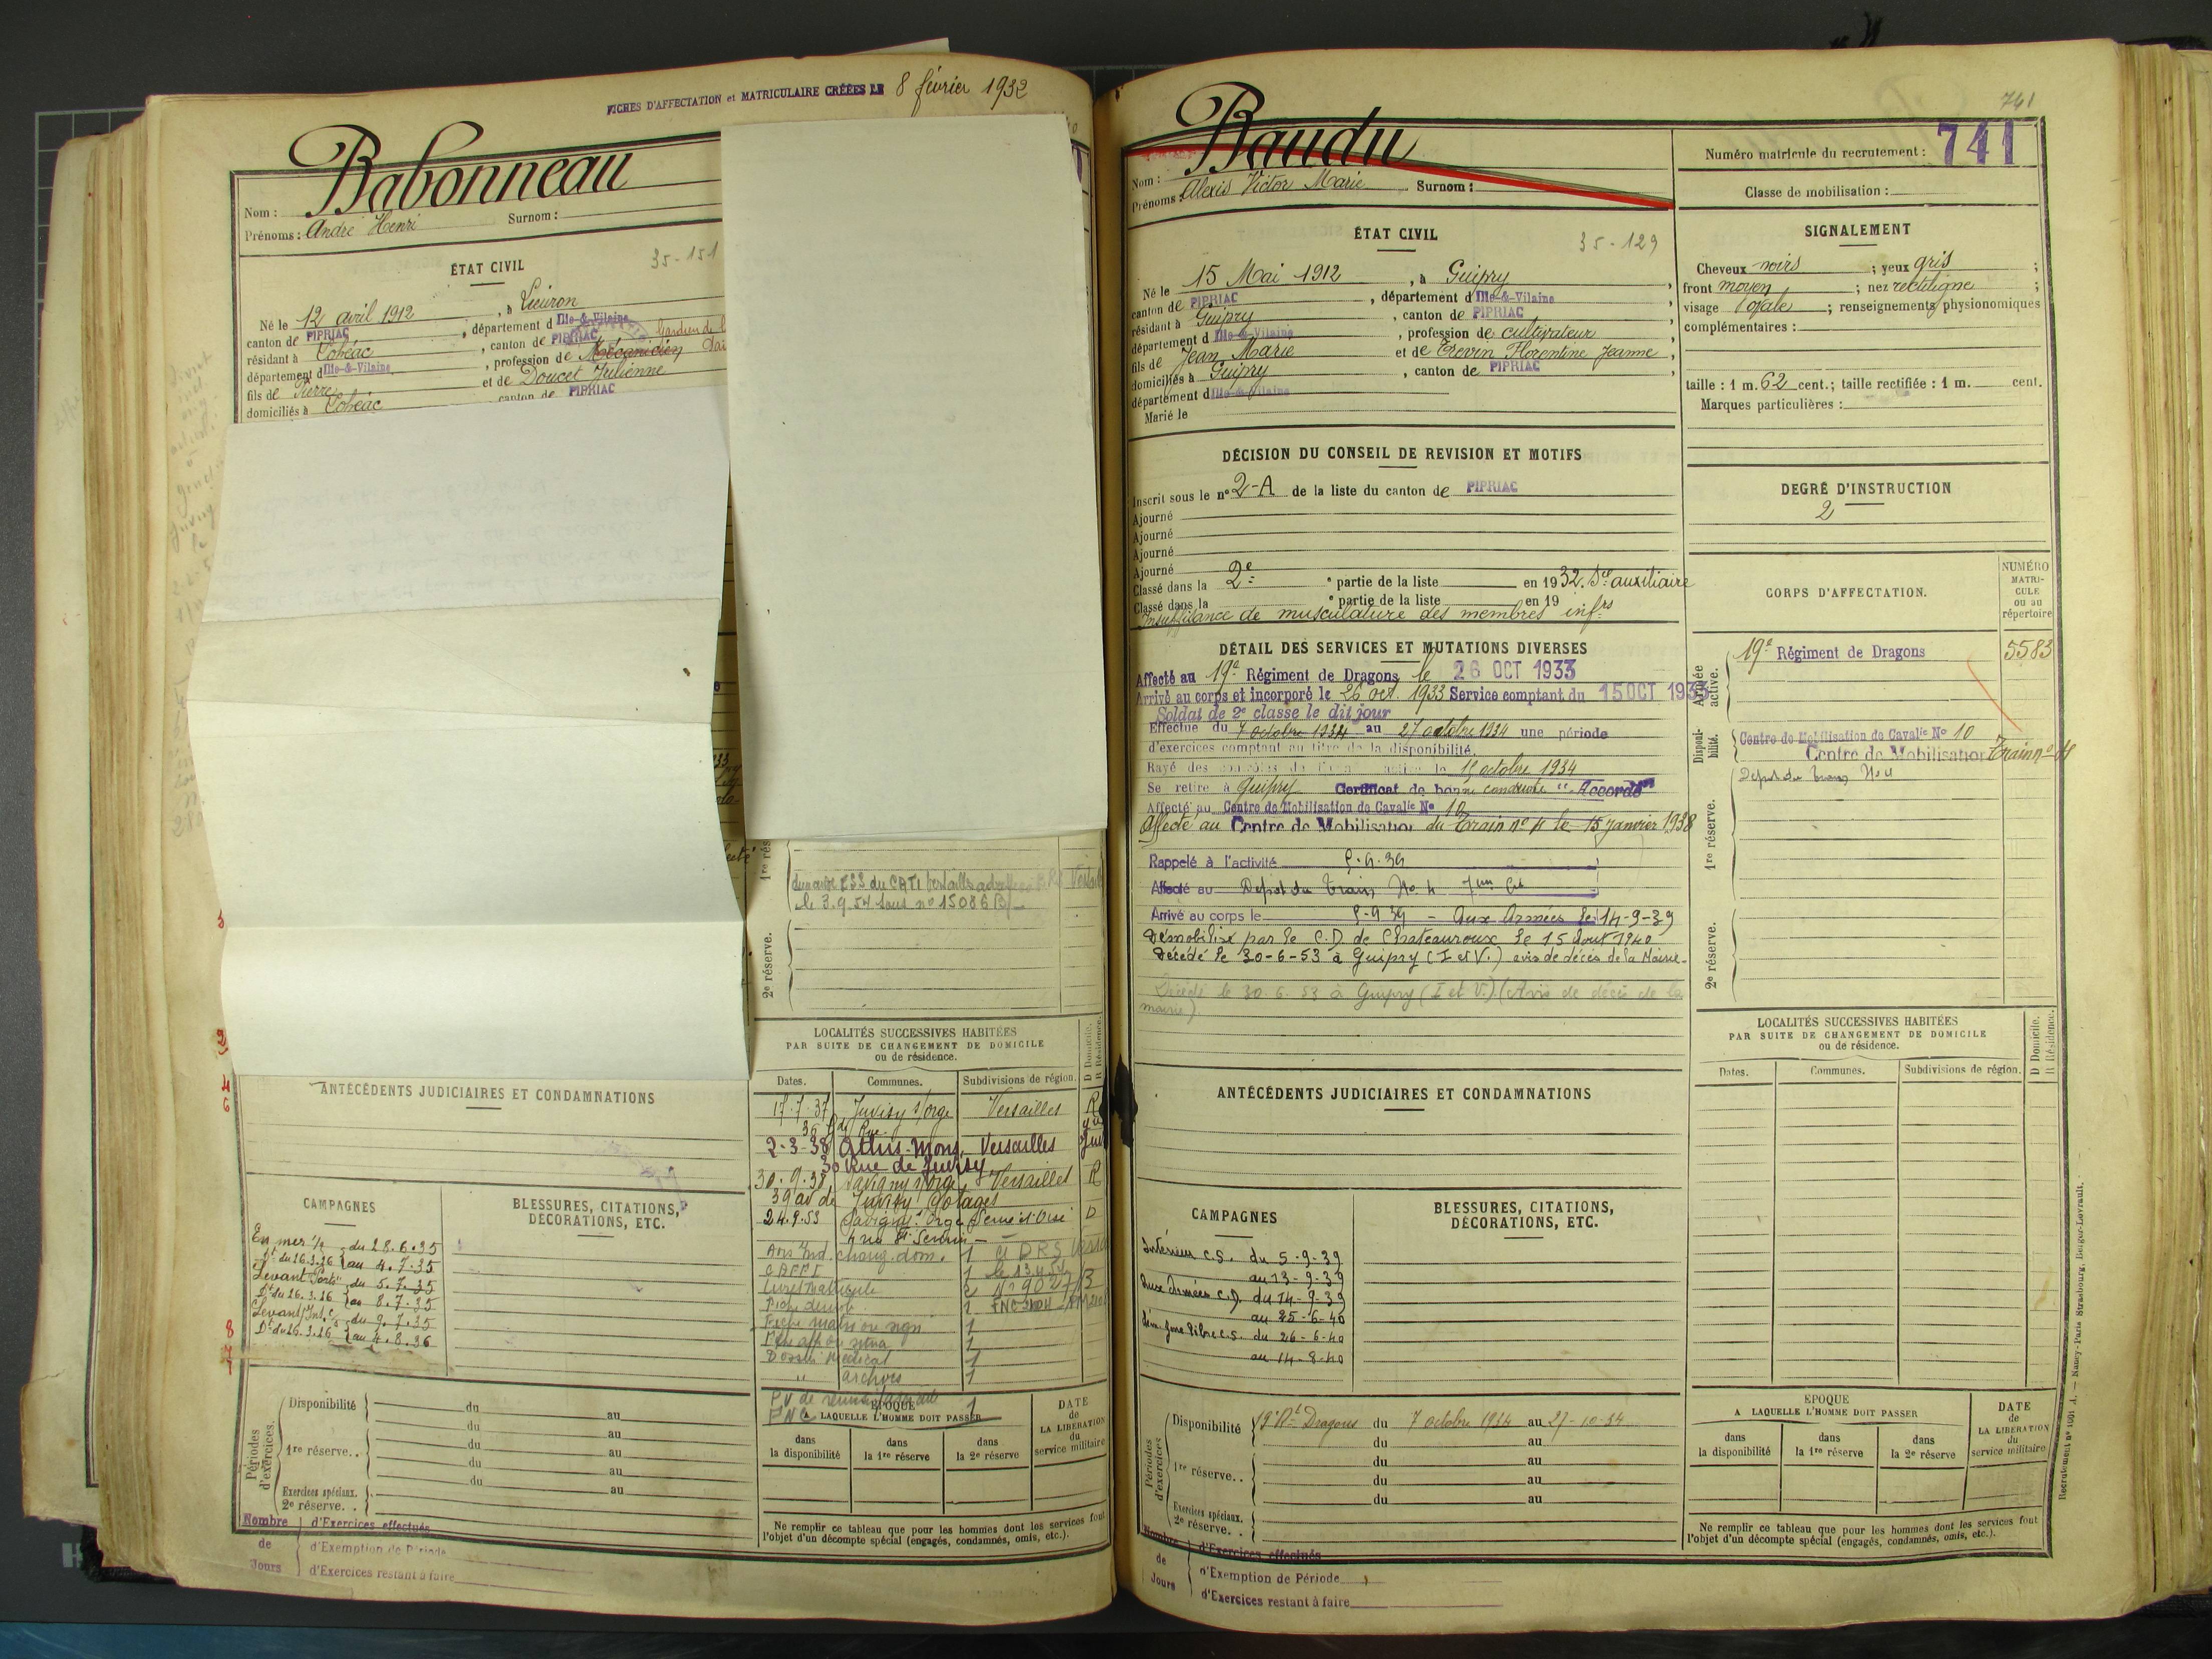 FICHES D'AFFECTATION et MATRICULAIRE CRÉÉES LE 8 février 1932
Babonneau
Nom :
Surnom :
Prénoms : André Henri
ÉTAT CIVIL
35-151
Né le 12 avril 1912, à Lieuron
canton de PIPRIAC, département d Ille-&-Vilaine
résidant à Lohéac, canton de PIPRIAC
département d Ille-&-Vilaine, profession de Mécanicien
fils de Pierre et de Doucet Julienne
domiciliés à Lohéac canton de PIPRIAC
1re rés
le 3.9.54 sous no 15086 B/
2e réserve.
LOCALITÉS SUCCESSIVES HABITÉES
PAR SUITE DE CHANGEMENT DE DOMICILE
ou de résidence.
D Domicile.
R Résidence.
Dates. Communes. Subdivisions de région.
17.7.37 Juvisy s/orge Versailles R
2-3-38 Athis-Mons Versailles
30 Rue de Juvisy
30.9.38 Savigny s/orge Versailles R
39 av de
24.9.53 Savigny s/ Orge Seine et Oise D
chang. dom. 1
1
1
Dossier Médical 1
" archives 1
ANTÉCÉDENTS JUDICIAIRES ET CONDAMNATIONS
CAMPAGNES
BLESSURES, CITATIONS,
DÉCORATIONS, ETC.
En mer du 28.6.35
Dt du 16.3.36 au 4.7.35
Levant du 5.7.35
Dt du 16.3.36 au 8.7.35
Levant du 9.7.35
Dt du 16.3.36 au 4.8.36
Périodes d'exercices.
Disponibilité du au
du au
1re réserve.. du au
du au
Exercices spéciaux.
2e réserve. . du au
EPOQUE
A LAQUELLE L'HOMME DOIT PASSER
DATE
de
LA LIBÉRATION
du
service militaire
dans
la disponibilité
dans
la 1re réserve
dans
la 2e réserve
Ne remplir ce tableau que pour les hommes dont les services font
l'objet d'un décompte spécial (engagés, condamnés, omis, etc.).
Nombre de Jours
d'Exercices effectués
d'Exemption de Période
d'Exercices restant à faire
741
Baudu
Nom :
Prénoms : Alexis Victor Marie Surnom :
Numéro matricule du recrutement : 741
Classe de mobilisation :
ÉTAT CIVIL
35-129
Né le 15 Mai 1912, à Guipry,
canton de PIPRIAC, département d Ille-&-Vilaine
résidant à Guipry, canton de PIPRIAC
département d Ille-&-Vilaine, profession de cultivateur,
fils de Jean Marie et de Treven Florentine Jeanne,
domiciliés à Guipry, canton de PIPRIAC,
département d Ille-&-Vilaine
Marié le
SIGNALEMENT
Cheveux noirs ; yeux gris ;
front moyen ; nez rectiligne ;
visage ovale ; renseignements physionomiques
complémentaires :
taille : 1 m. 62 cent.; taille rectifiée : 1 m. cent.
Marques particulières :
DÉCISION DU CONSEIL DE REVISION ET MOTIFS
Inscrit sous le n° 2-A de la liste du canton de PIPRIAC
Ajourné
Ajourné
Ajourné
Ajourné
Classé dans la 2e e partie de la liste en 1932. Sce auxiliaire
Classé dans la e partie de la liste en 19
Insuffisance de musculature des membres infrs
DEGRÉ D'INSTRUCTION
2
CORPS D'AFFECTATION.
NUMÉRO
MATRI-
CULE
ou au
répertoire
Armée active.
19e Régiment de Dragons 5583
Disponibilité.
Centre de Mobilisation de Cavalie No 10
Centre de Mobilisation Train no 4
Depot du Train No 4
1re réserve.
2e réserve.
DÉTAIL DES SERVICES ET MUTATIONS DIVERSES
Affecté au 19e Régiment de Dragons le 26 OCT 1933
Arrivé au corps et incorporé le 26 oct. 1933 Service comptant du 15 OCT 1933
Soldat de 2e classe le dit jour
Effectue du 7 octobre 1934 au 27 octobre 1934 une période
d'exercices comptant au titre de la disponibilité.
Rayé des contrôles de l'armée active le 15 octobre 1934
Se retire à Guipry Certificat de bonne conduite "Accordé"
Affecté au Centre de Mobilisation de Cavalie No 10
Affecté au Centre de Mobilisation du Train no 4 le 15 janvier 1938
Rappelé à l'activité 5.9.39
Affecté au Depot du Train No 4
Arrivé au corps le 5-9 39 - Aux Armées le 14-9-39
Démobilisé par le C.D. de Chateauroux le 15 Aout 1940
Décédé le 30-6-53 à Guipry (I et V.) avis de décès de la Mairie
Décédé le 30.6.53 à Guipry (I et V.) (Avis de décès de la
mairie)
LOCALITÉS SUCCESSIVES HABITÉES
PAR SUITE DE CHANGEMENT DE DOMICILE
ou de résidence.
D Domicile.
R Résidence.
Dates. Communes. Subdivisions de région.
ANTÉCÉDENTS JUDICIAIRES ET CONDAMNATIONS
CAMPAGNES
BLESSURES, CITATIONS,
DÉCORATIONS, ETC.
Intérieur C.S. du 5-9-39
au 13-9-39
Aux Armées C.D. du 14-9-39
au 25-6-40
Zone libre C.S. du 26-6-40
au 14-8-40
Périodes d'exercices.
Disponibilité 19e Rt Dragons du 7 octobre 1934 au 27-10-34
du au
1re réserve.. du au
du au
Exercices spéciaux.
2e réserve. . du au
EPOQUE
A LAQUELLE L'HOMME DOIT PASSER
DATE
de
LA LIBÉRATION
du
service militaire
dans
la disponibilité
dans
la 1re réserve
dans
la 2e réserve
Ne remplir ce tableau que pour les hommes dont les services font
l'objet d'un décompte spécial (engagés, condamnés, omis, etc.).
Nombre de Jours
d'Exercices effectués
d'Exemption de Période
d'Exercices restant à faire
Recrutement n° 1001 A. — Nancy-Paris-Strasbourg, Berger-Levrault.